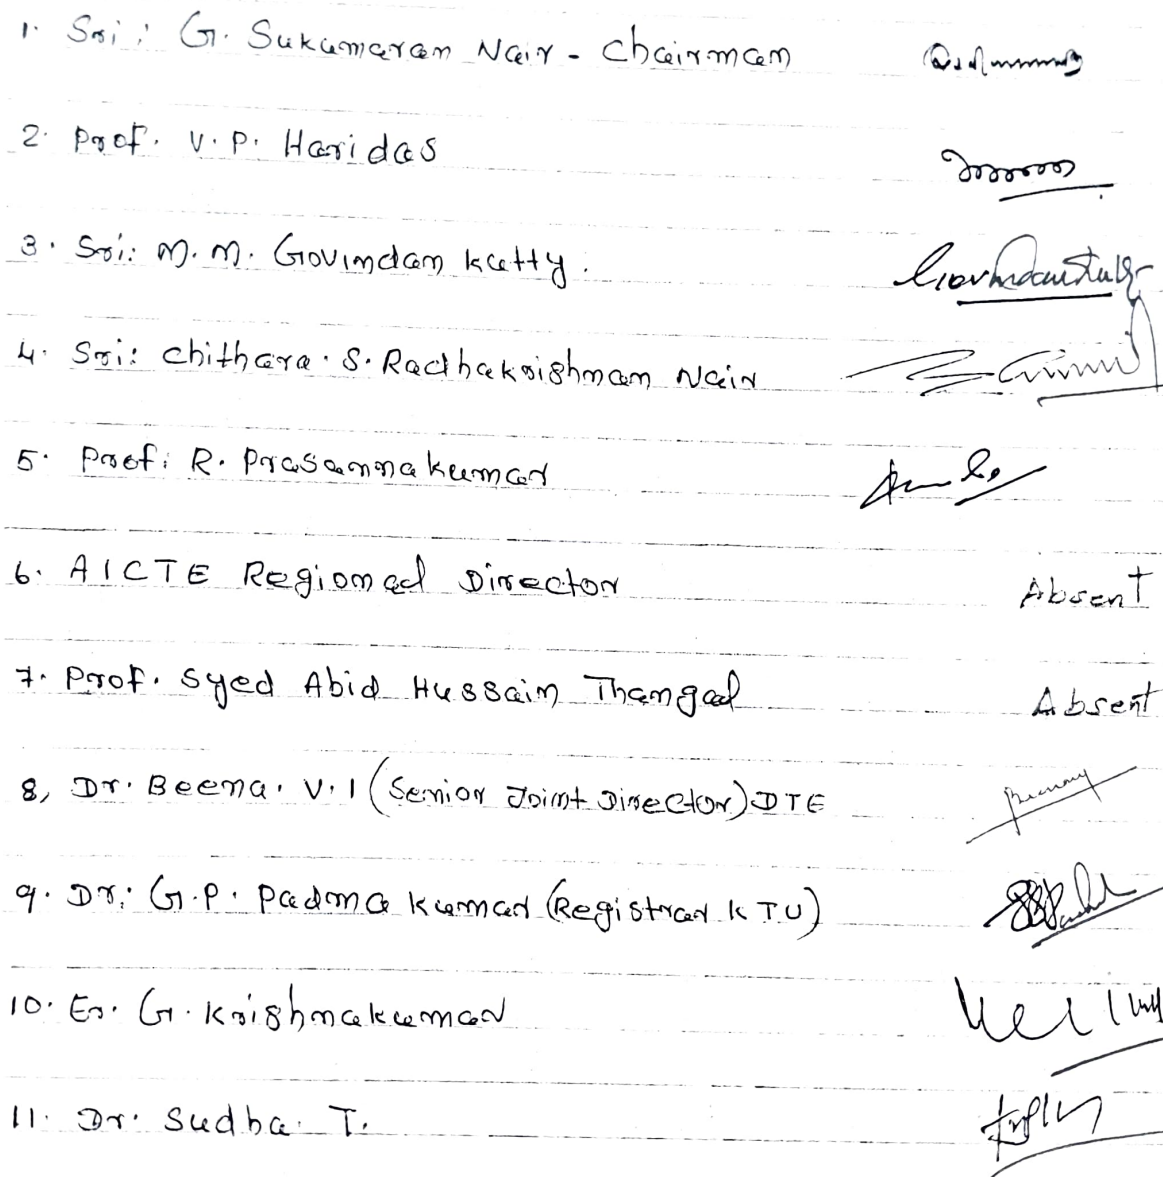 1. Sri: G. Sukumaran Nair - Chairman
2. Prof. V. P. Haridas
3. Sri: M. M. Govindan Kutty. Govindankutty
4. Sri: Chithara. S. Radhakrishnan Nair
5. Prof: R. Prasannakumar
6. AICTE Regional Director Absent
7. Prof. Syed Abid Hussain Thangal Absent
8, Dr. Beena. V. I (Senior Joint Director) DTE
9. Dr: G. P. Padma Kumar (Registrar KTU)
10. Er. G. Krishnakumar
11. Dr. Sudha. T.